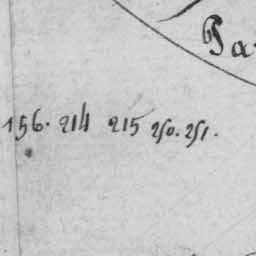 Pa
156. 214 215 250. 251.